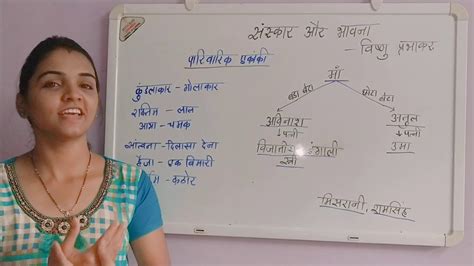 संस्कार और भावना
- विष्णु प्रभाकर
पारिवारिक एकांकी
कुंडलाकार - गोलाकार
रक्तिम - लाल
आभा - चमक
सान्त्वना - दिलासा देना
हैजा - एक बिमारी
कठोर
माँ
बड़ा बेटा
छोटा बेटा
अविनाश
अतुल
↓ पत्नी
↓ पत्नी
विजातीय बंगाली
उमा
स्त्री
मिसरानी, रामसिंह